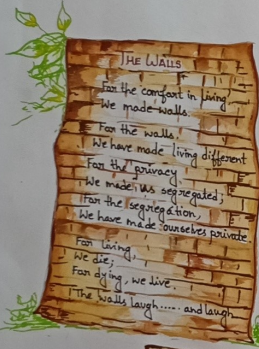 THE WALLS
For the comfort in living
We made walls.
For the walls,
We have made living different
For the privacy,
We made us segregated;
For the segregation,
We have made ourselves private.
For living,
We die;
For dying, we live.
The walls laugh..... and laugh